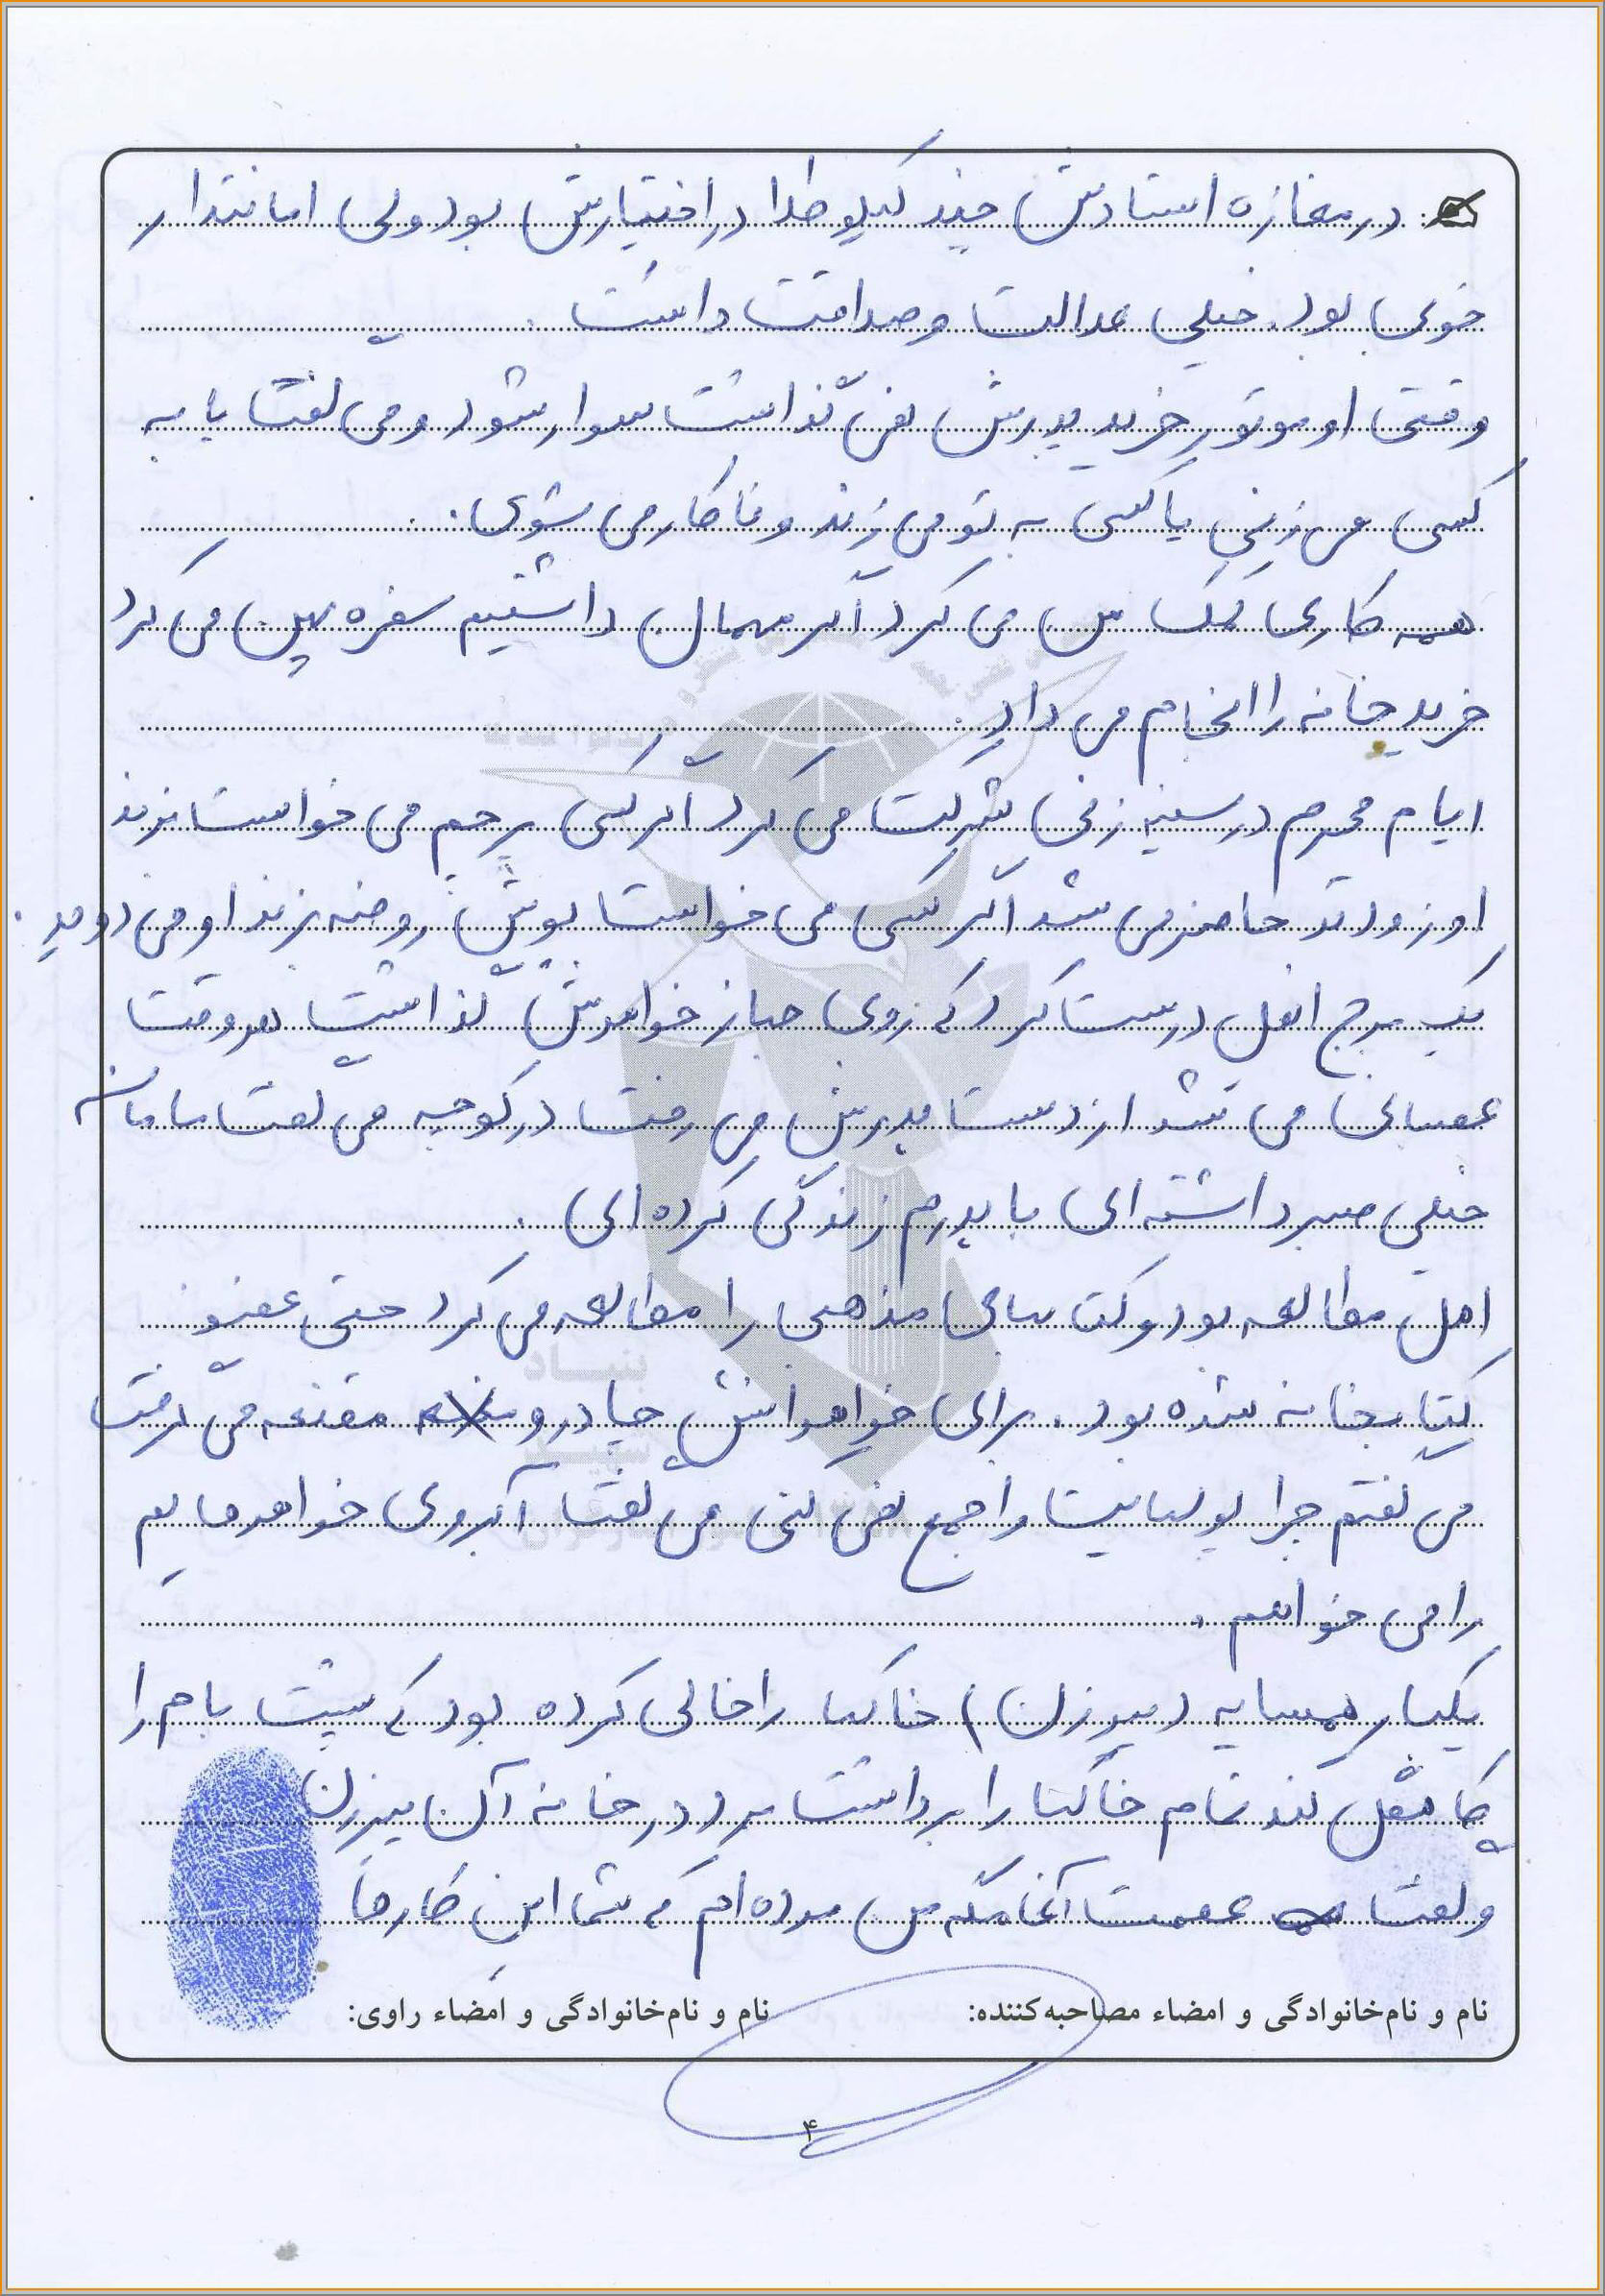 در مغازه استادش چند کیلو طلا در اختیارش بود ولی امانتدار
خوبی بود. خیلی عدالت و صداقت داشت.
وقتی او موتور خرید پدرش نمی گذاشت سوار شود و می گفت یا به
کسی می زنی یا کسی به تو می زند و خطا کار می شوی.
همه کاری کمک من می کرد اگر مهمان داشتیم سفره پهن می کرد
خرید خانه را انجام می داد.
ایام محرم در سینه زنی شرکت می کرد اگر کسی پرچم می خواست بزند
او زودتر حاضر می شد اگر کسی می خواست پوش روضه بزند او می دوید.
یک برج ایفل درست کرد که روی جهاز خواهرش گذاشت هر وقت
عصبانی می شد از دست پدرش می رفت در کوچه می گفت مامان
خیلی صبر داشته ای با پدرم زندگی کرده ای.
اهل مطالعه بود و کتابهای مذهبی را مطالعه می کرد حتی عضو
کتابخانه شده بود. برای خواهرانش چادر و مقنعه می گرفت
می گفتم چرا پولهایت را جمع نمی کنی می گفت آبروی خواهرهایم
را می خواهم.
یکبار همسایه (پیرزن) خاکها را خالی کرده بود که پشت بام را
کاهگل کند تمام خاکها را برداشت برد در خانه آن پیرزن
و گفت عصمت آغا مگه من مرده ام که شما این کارها
نام و نام‌خانوادگی و امضاء مصاحبه‌کننده: نام و نام‌خانوادگی و امضاء راوی:
۴